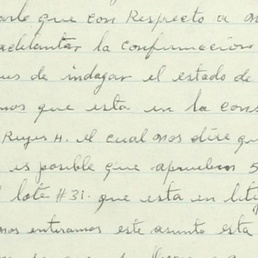 arle que con Respecto a
adelantar la confirmacion
de indagar el estado de
mos que esta en la cons
Reyes H. el cual nos dice qu
es posible que aprueben 5
lote #31. que esta en lit
nos enteramos este asunto esta